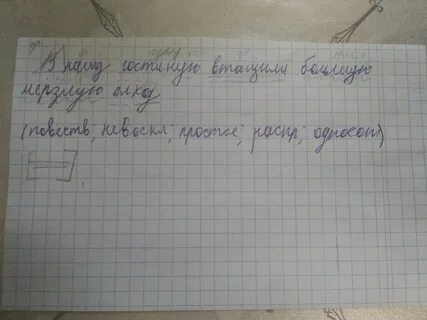 В нашу гостиную втащили большую
мерзлую ёлку
(повеств; невоскл; простое; распр; односост)